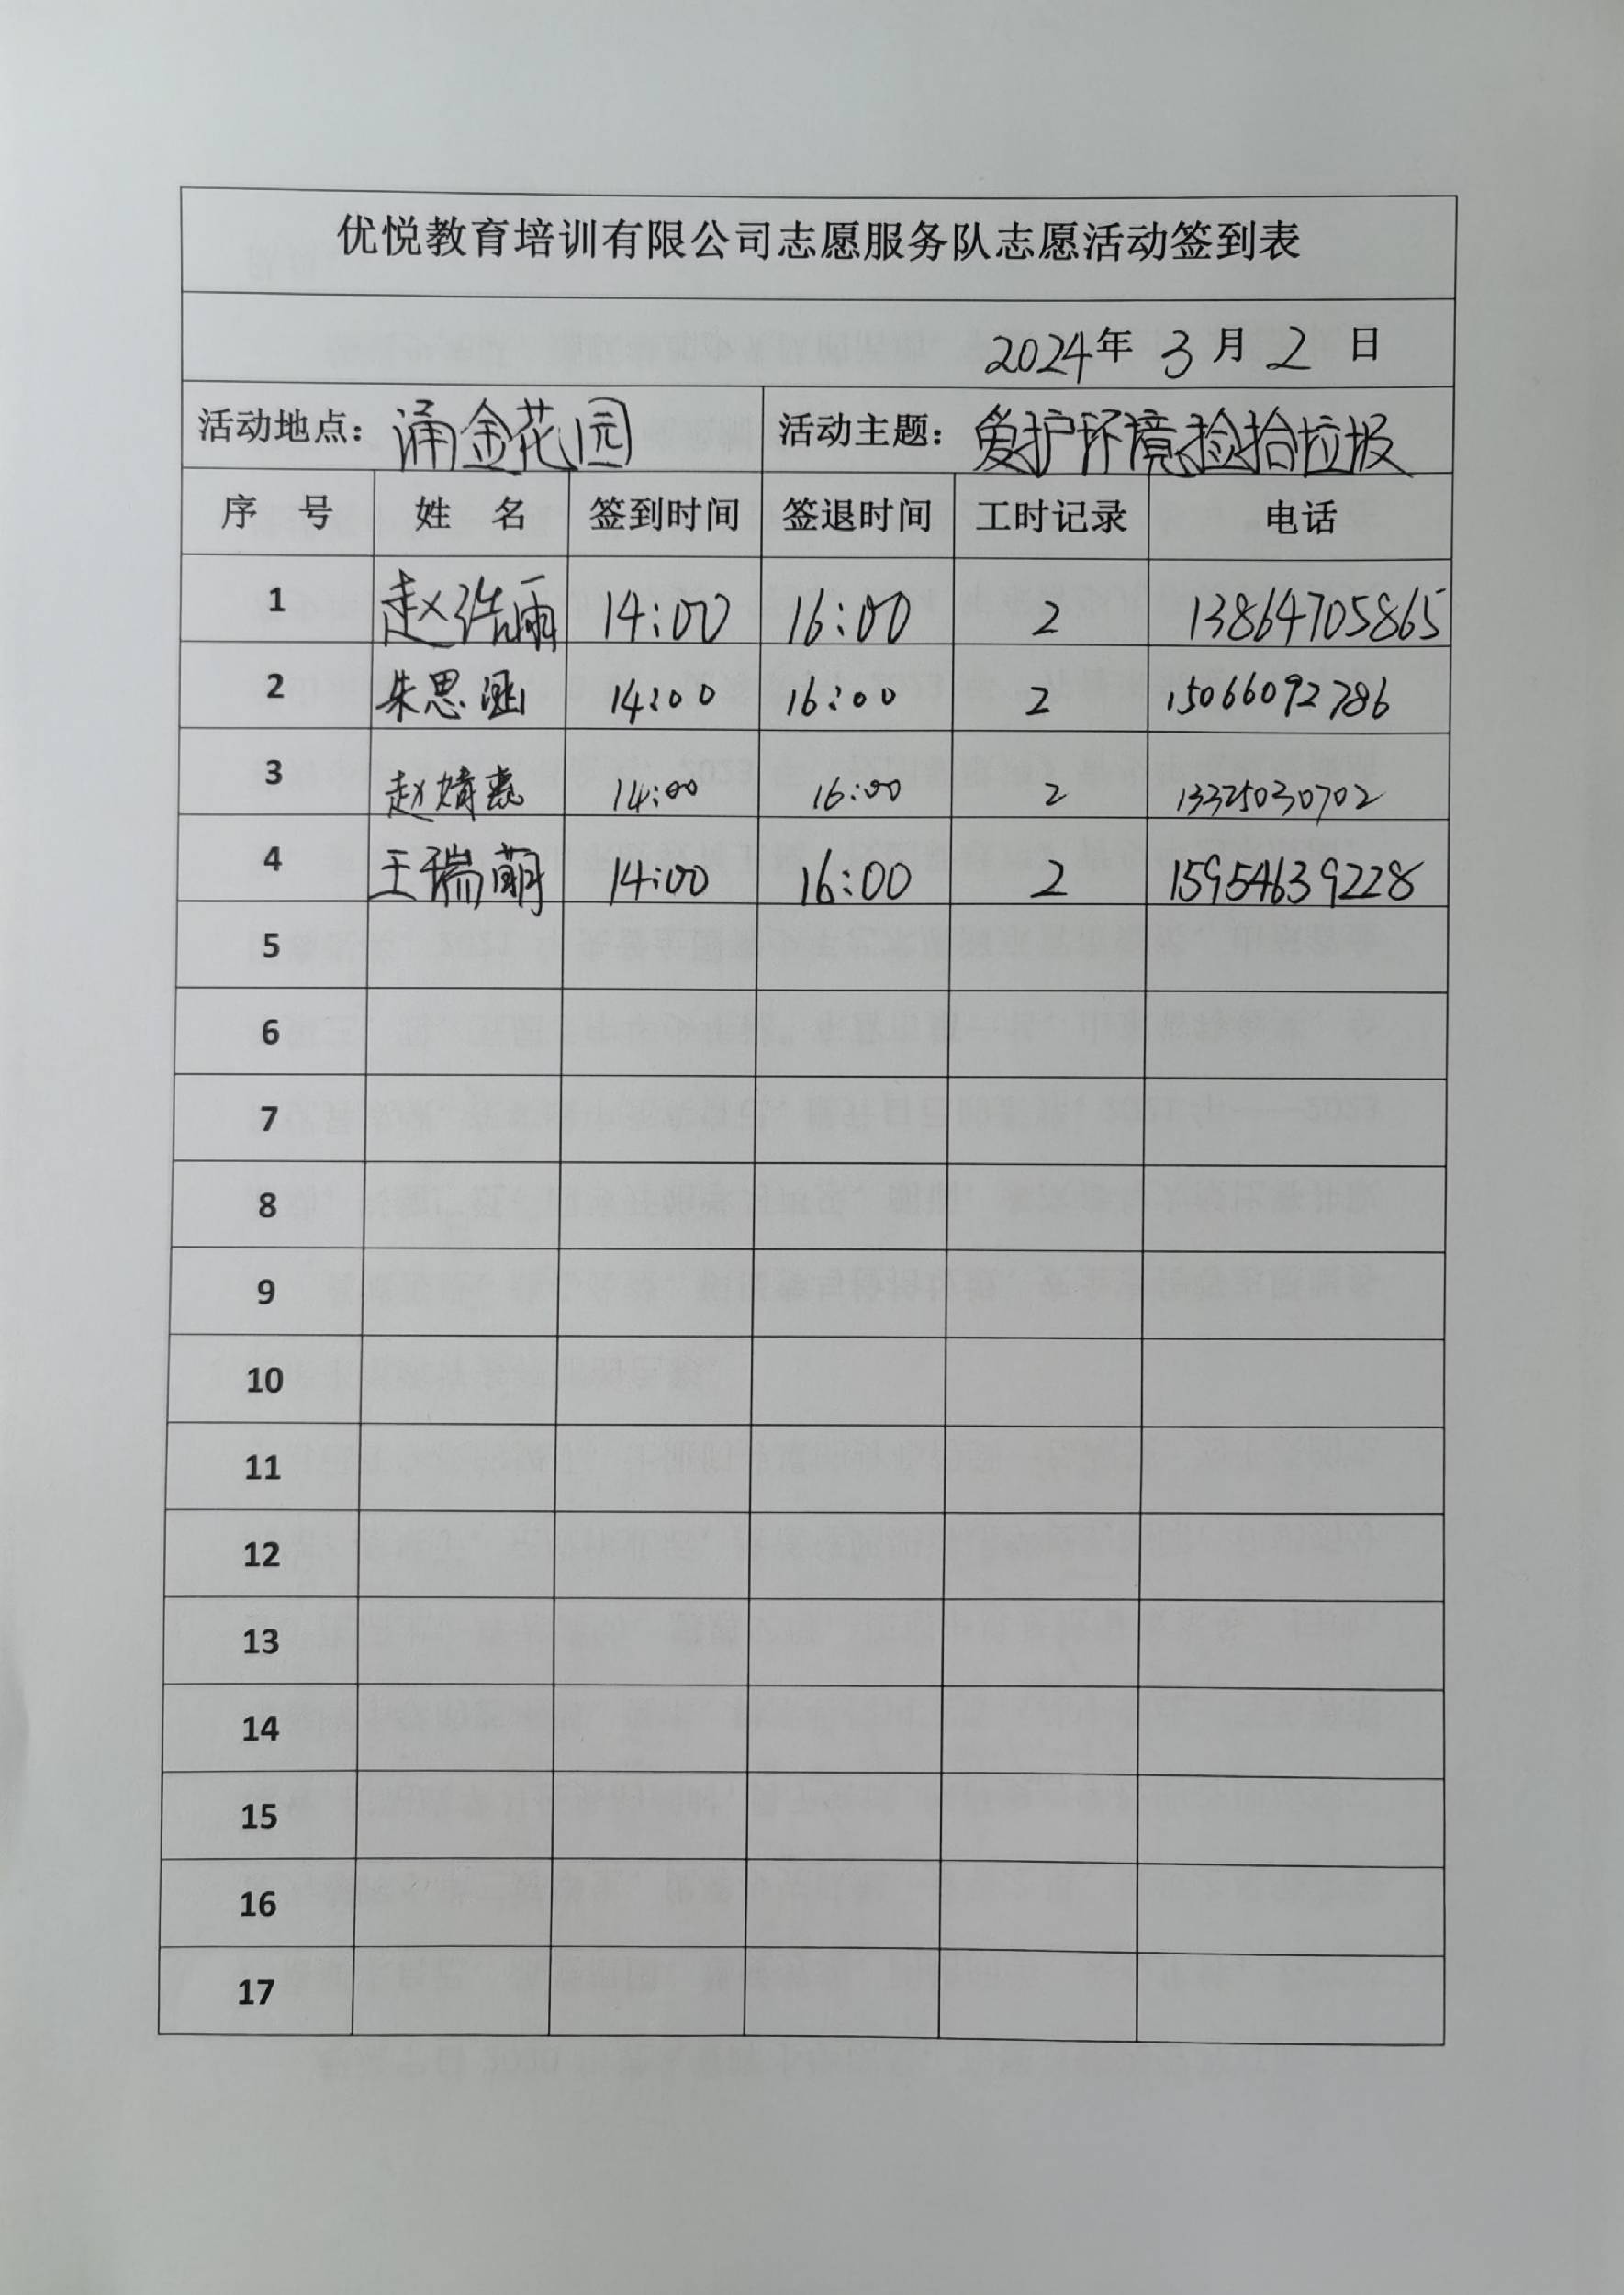 优悦教育培训有限公司志愿服务队志愿活动签到表
2024年 3 月 2 日
活动地点：涌金花园 活动主题：爱护环境捡拾垃圾
序 号 姓 名 签到时间 签退时间 工时记录 电话
1 赵浩雨 14:00 16:00 2 13864705865
2 朱思涵 14:00 16:00 2 15066092786
3 赵婧惠 14:00 16:00 2 13325030702
4 王瑞萌 14:00 16:00 2 15954639228
5
6
7
8
9
10
11
12
13
14
15
16
17